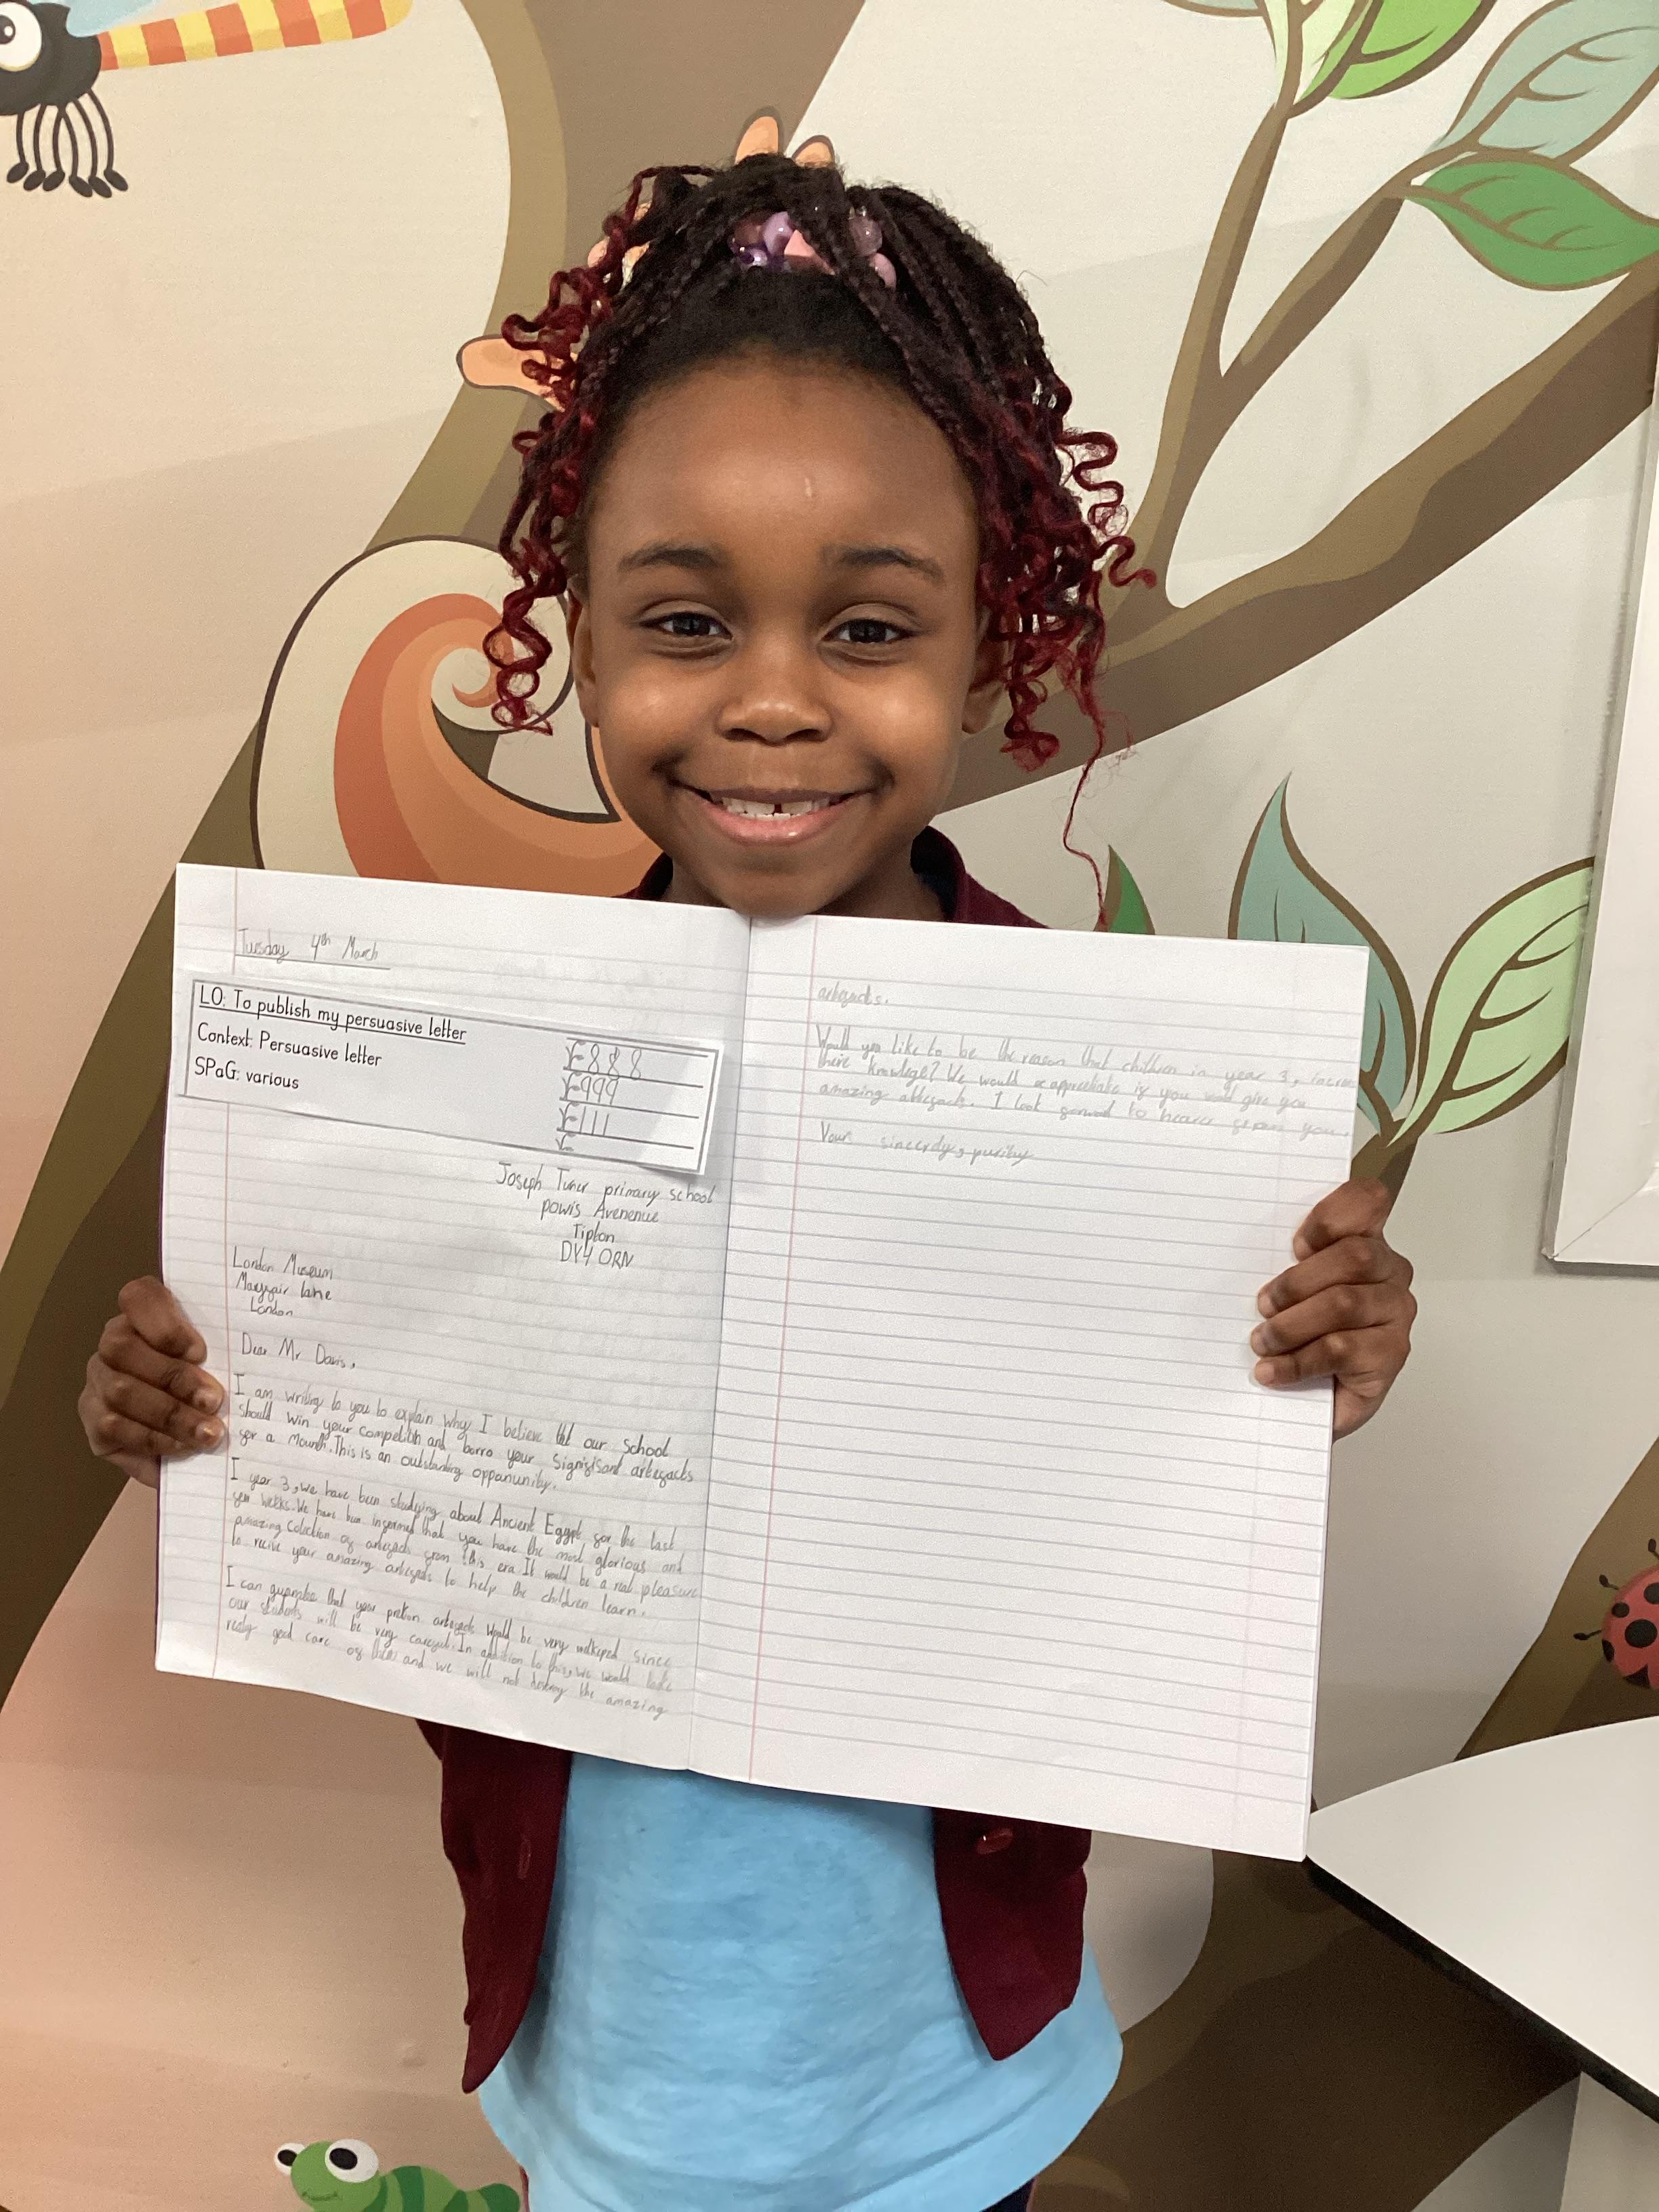 Tuesday 4th March
LO: To publish my persuasive letter
Context: Persuasive letter
SPaG: various
888
999
111
Joseph Tuner primary school
powis Avenenue
Tipton
DY4 0RN
London Museum
Mayfair lane
London
Dear Mr Davis,
I am writing to you to explain why I believe that our school
should win your competition and borro your signifisant artefacts
for a mounth. This is an outstanding oppanunity.
I year 3, we have been studying about Ancient Egypt for the last
few weeks. We have been informed that you have the most glorious and
amazing colection of artefacts from this era. It would be a real pleasure
to recive your amazing artefacts to help the children learn.
I can that your artefacts would be very since
our students will be very careful. In addition to this, we would take
really good care of them and we will not destroy the amazing
artefacts.
Would you like to be the reason that children in year 3,
there knowlege? We would appreciate if you would give you
amazing artefacts. I look forward to hearer from you
Your sincerely,